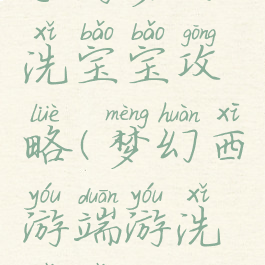 xǐ bǎo bǎo gōng
洗宝宝攻
lüè mèng huàn xī
略(梦幻西
yóu duān yóu xǐ
游端游洗